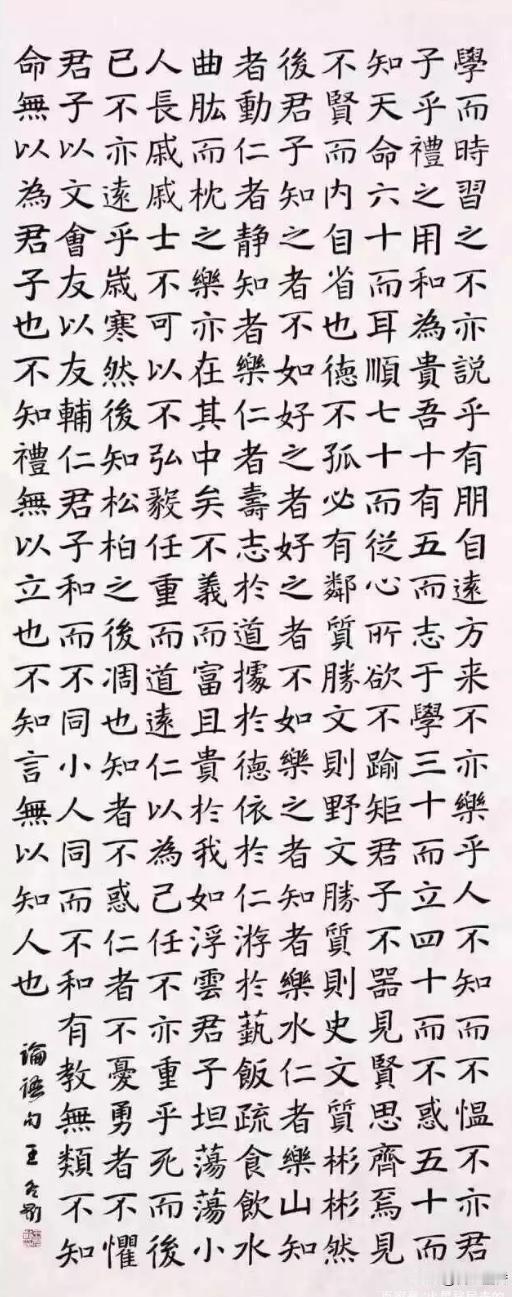 學而時習之不亦説乎有朋自遠方来不亦樂乎人不知而不愠不亦君
子乎禮之用和為貴吾十有五而志于學三十而立四十而不惑五十而
知天命六十而耳順七十而従心所欲不踰矩君子不器見賢思齊焉見
不賢而内自省也德不孤必有鄰質勝文則野文勝質則史文質彬彬然
後君子知之者不如好之者好之者不如樂之者知者樂水仁者樂山知
者動仁者静知者樂仁者壽志於道據於德依於仁游於藝飯疏食飲水
曲肱而枕之樂亦在其中矣不義而富且貴於我如浮雲君子坦蕩蕩小
人長戚戚士不可以不弘毅任重而道遠仁以為己任不亦重乎死而後
已不亦遠乎歲寒然後知松柏之後凋也知者不惑仁者不憂勇者不懼
君子以文會友以友輔仁君子和而不同小人同而不和有教無類不知
命無以為君子也不知禮無以立也不知言無以知人也
論語句王